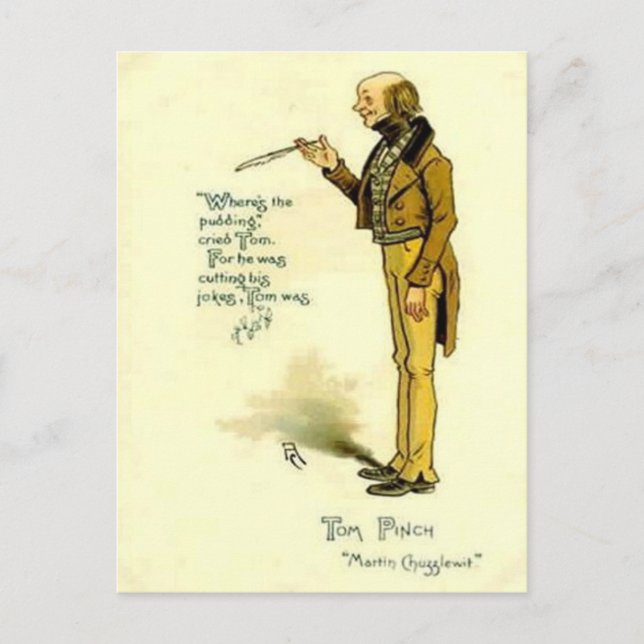 "Where's the
pudding,"
cried Tom.
For he was
cutting his
jokes, Tom was.
TOM PINCH
"Martin Chuzzlewit."